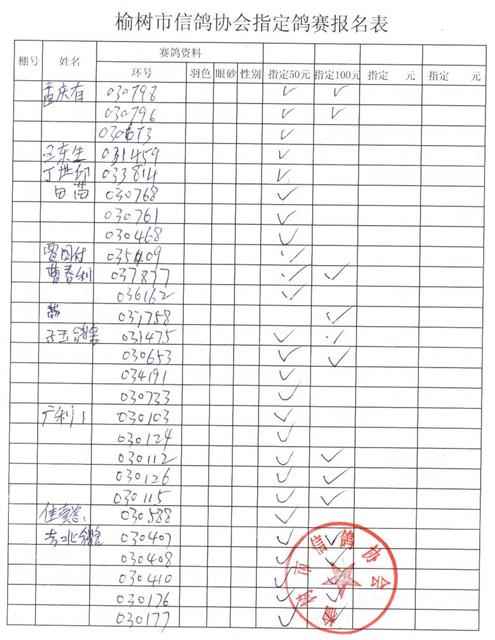 榆树市信鸽协会指定鸽赛报名表
棚号 姓名 赛鸽资料 指定50元 指定100元 指定 元 指定 元
环号 羽色 眼砂 性别
孟庆有 030798 ✓ ✓
030796 ✓ ✓
030613 ✓
王东生 031459 ✓
丁世邱 033814 ✓
田苗 030768 ✓
030761 ✓
030468 ✓
035409 ✓
曹春利 037837 ✓ ✓
036132 ✓
031758 ✓
031475 ✓ ✓
030653 ✓ ✓
034191 ✓
030733 ✓
030103 ✓
030124 ✓
030112 ✓ ✓
030126 ✓ ✓
030115 ✓ ✓
030588 ✓
030407 ✓ ✓
030408 ✓ ✓
030410 ✓ ✓
030176 ✓ ✓
030177 ✓ ✓
榆树市信鸽协会